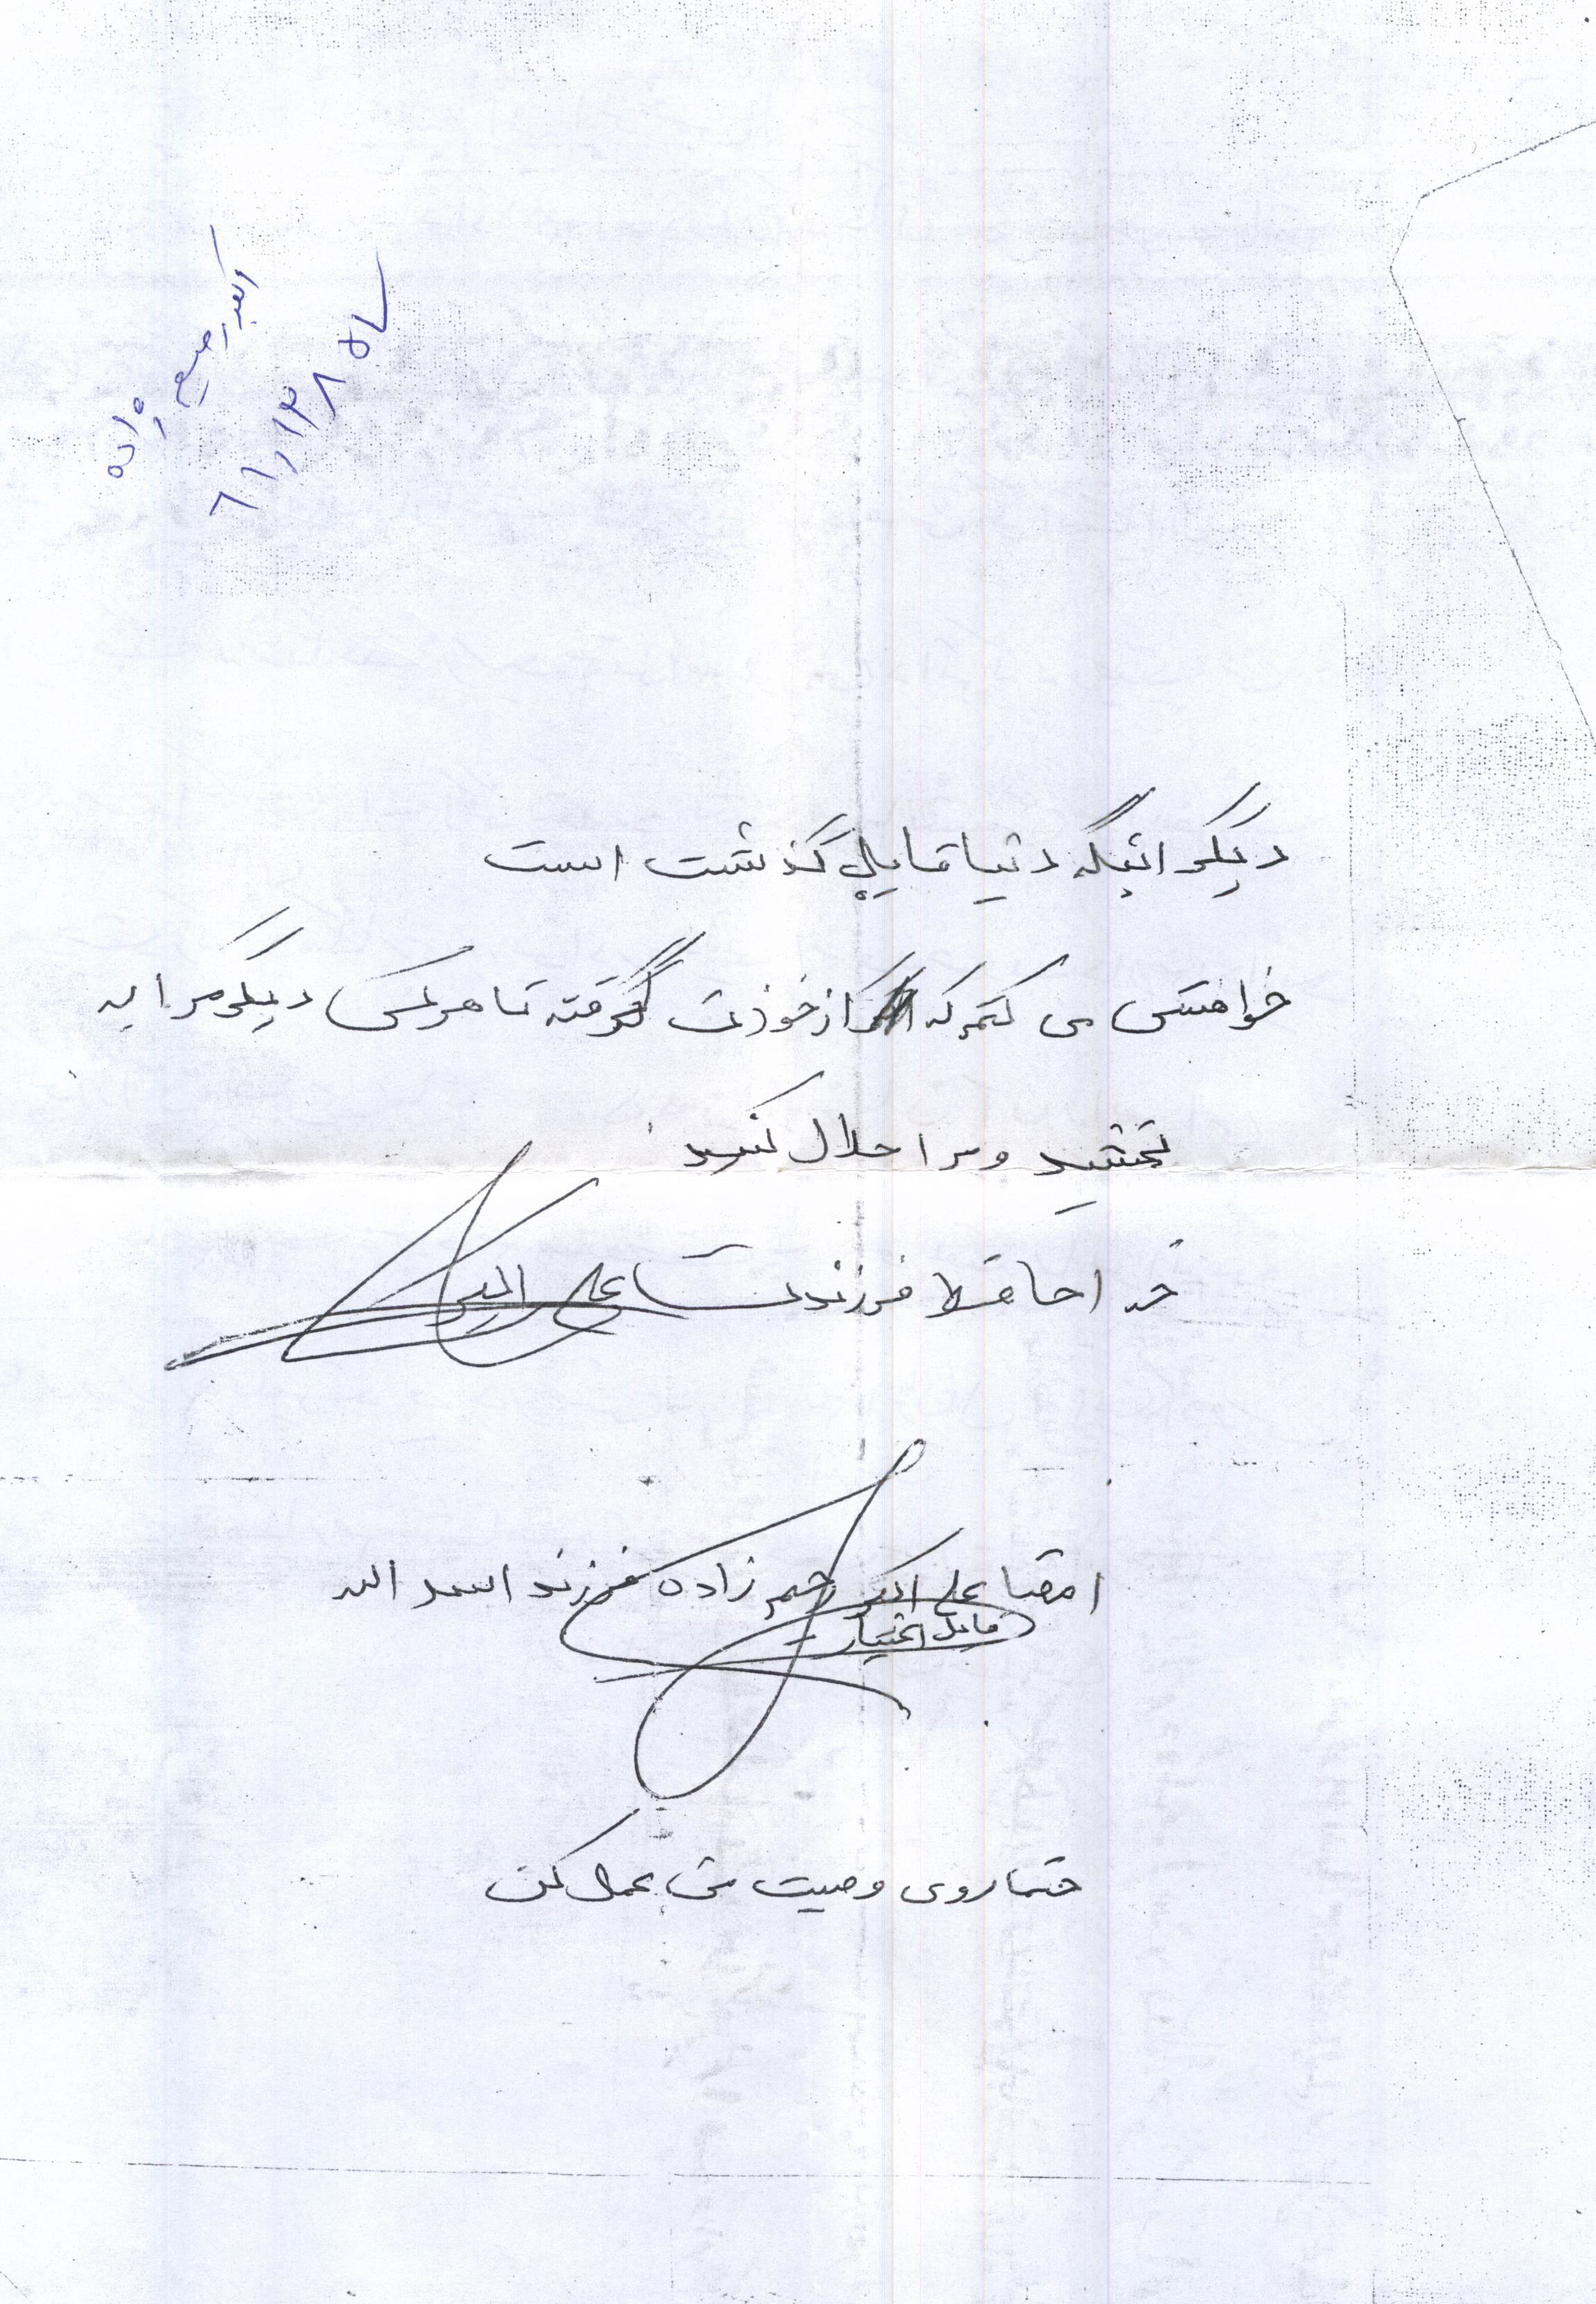 اکبر رحیم زاده
دیگر اینکه دنیا قابل گذشت است
خواهش می کنم که از خودت گرفته تا هر کس دیگر مرا به
بخشید و مرا حلال کنید
خدا حافظ فرزند شما علی اکبر
امضا علی اکبر رحیم زاده فرزند اسد اله
حتما روی وصیت من عمل کن